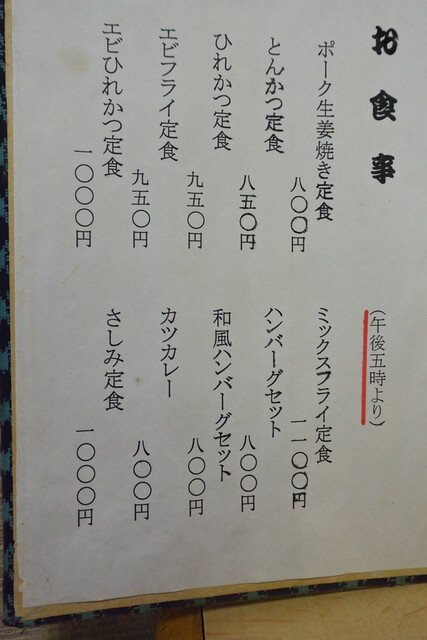 お食事
(午後五時より)
ポーク生姜焼き定食
八〇〇円
とんかつ定食
八五〇円
ひれかつ定食
九五〇円
エビフライ定食
九五〇円
エビひれかつ定食
一〇〇〇円
ミックスフライ定食
一一〇〇円
ハンバーグセット
八〇〇円
和風ハンバーグセット
八〇〇円
カツカレー
八〇〇円
さしみ定食
一〇〇〇円